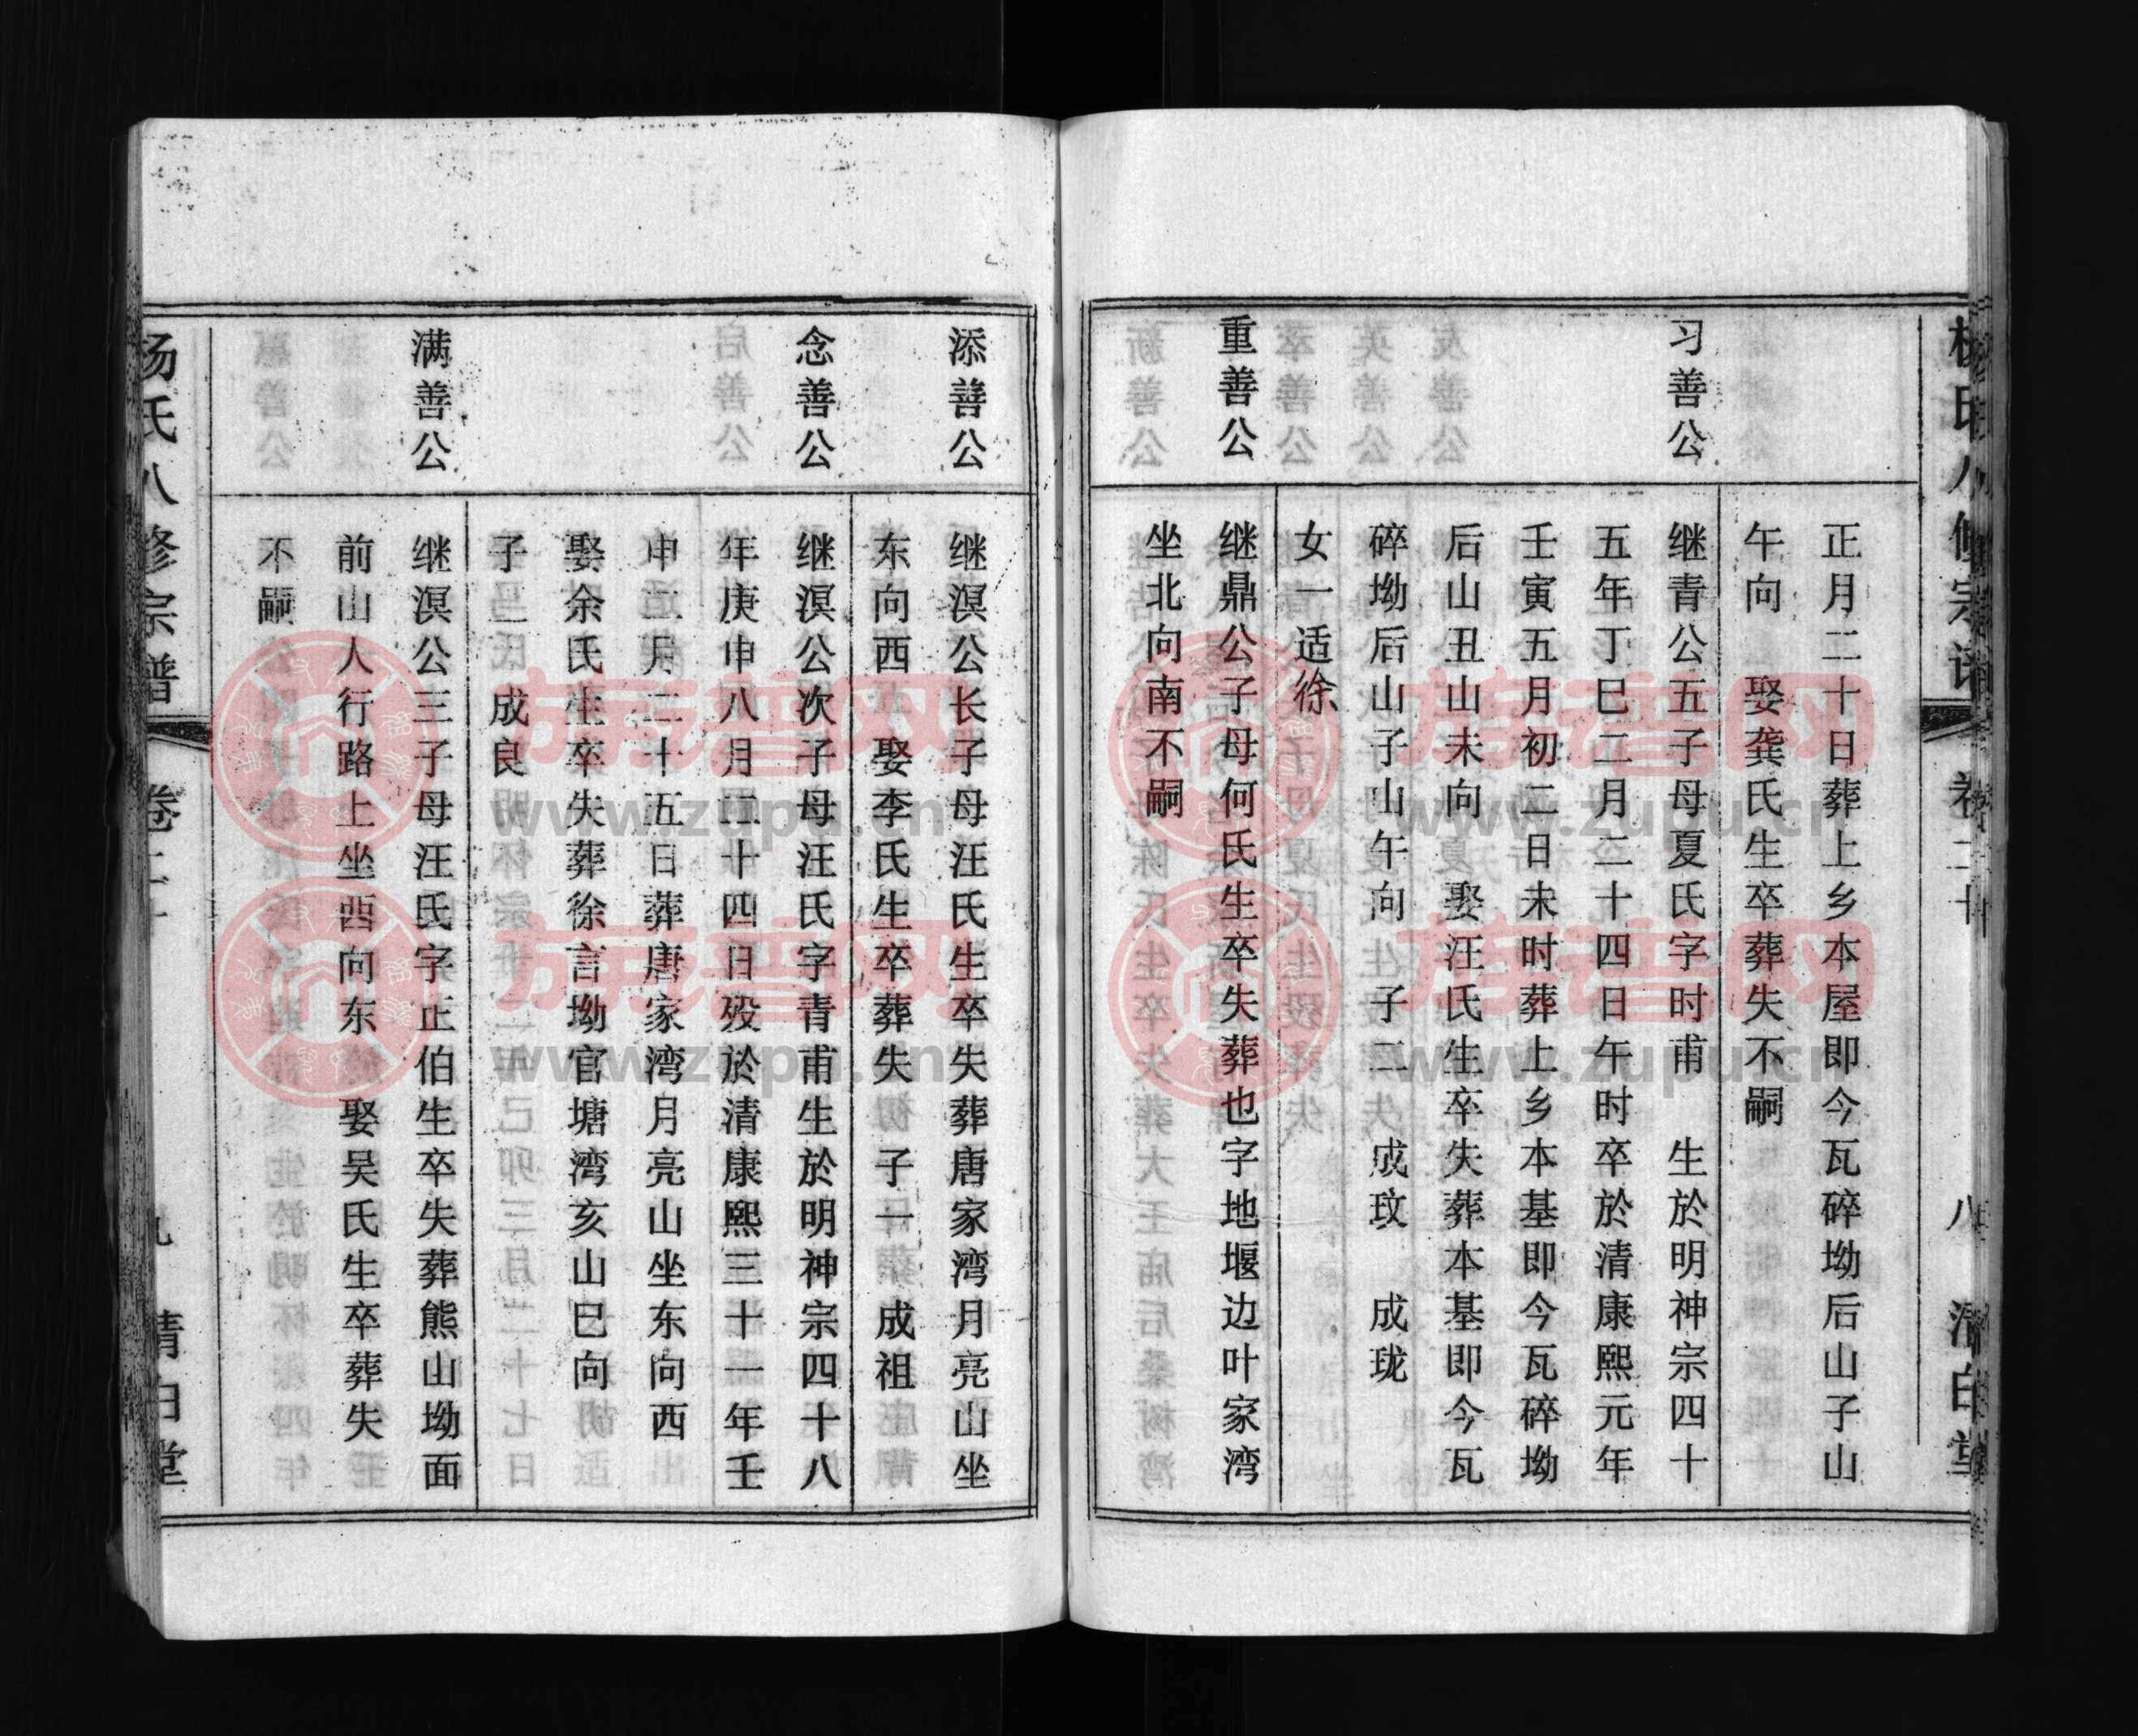 杨氏八修宗谱 卷二十 八 清白堂
正月二十日葬上乡本屋即今瓦碎坳后山子山
午向 娶龚氏生卒葬失不嗣
习善公
继青公五子母夏氏字时甫 生於明神宗四十
五年丁巳二月二十四日午时卒於清康熙元年
壬寅五月初二日未时葬上乡本基即今瓦碎坳
后山丑山未向 娶汪氏生卒失葬本基即今瓦
碎坳后山子山午向 子二 成玟 成珑
女一适徐
重善公
继鼎公子母何氏生卒失葬也字地堰边叶家湾
坐北向南不嗣
添善公
继溟公长子母汪氏生卒失葬唐家湾月亮山坐
东向西 娶李氏生卒葬失 子一 成祖
念善公
继溟公次子母汪氏字青甫生於明神宗四十八
年庚申八月二十四日殁於清康熙三十一年壬
申二月二十五日葬唐家湾月亮山坐东向西
娶余氏生卒失葬徐言坳官塘湾亥山巳向
子 成良
满善公
继溟公三子母汪氏字正伯生卒失葬熊山坳面
前山人行路上坐西向东 娶吴氏生卒葬失
不嗣
杨氏八修宗谱 卷二十 九 清白堂
族谱网
www.zupu.cn
族谱网
www.zupu.cn
族谱网
www.zupu.cn
族谱网
www.zupu.cn